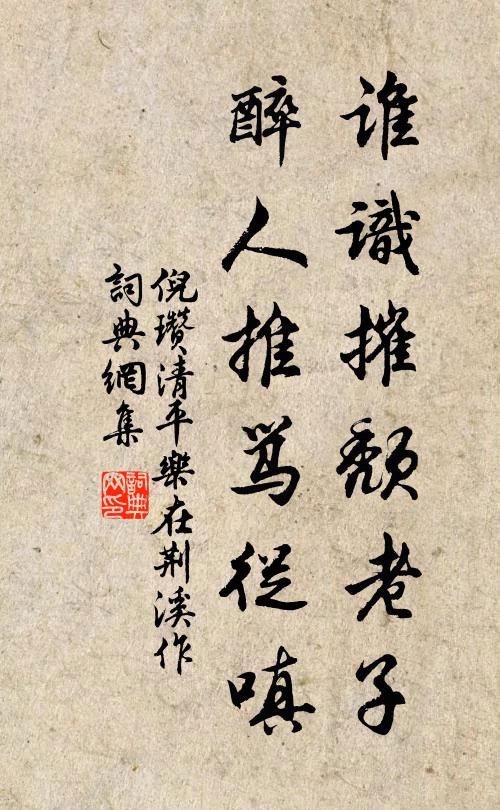 谁識摧頹老子
醉人推骂從嗔
倪瓚清平樂在荆溪作
詞典網集
詞典网印